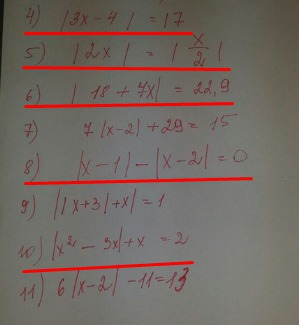 4) |3x-4| = 17
5) |2x| = |x/2|
6) |18 + 7x| = 22,9
7) 7|x-2| + 29 = 15
8) |x-1| - |x-2| = 0
9) ||x+3|+x| = 1
10) |x² - 3x| + x = 2
11) 6|x-2| - 11 = 13